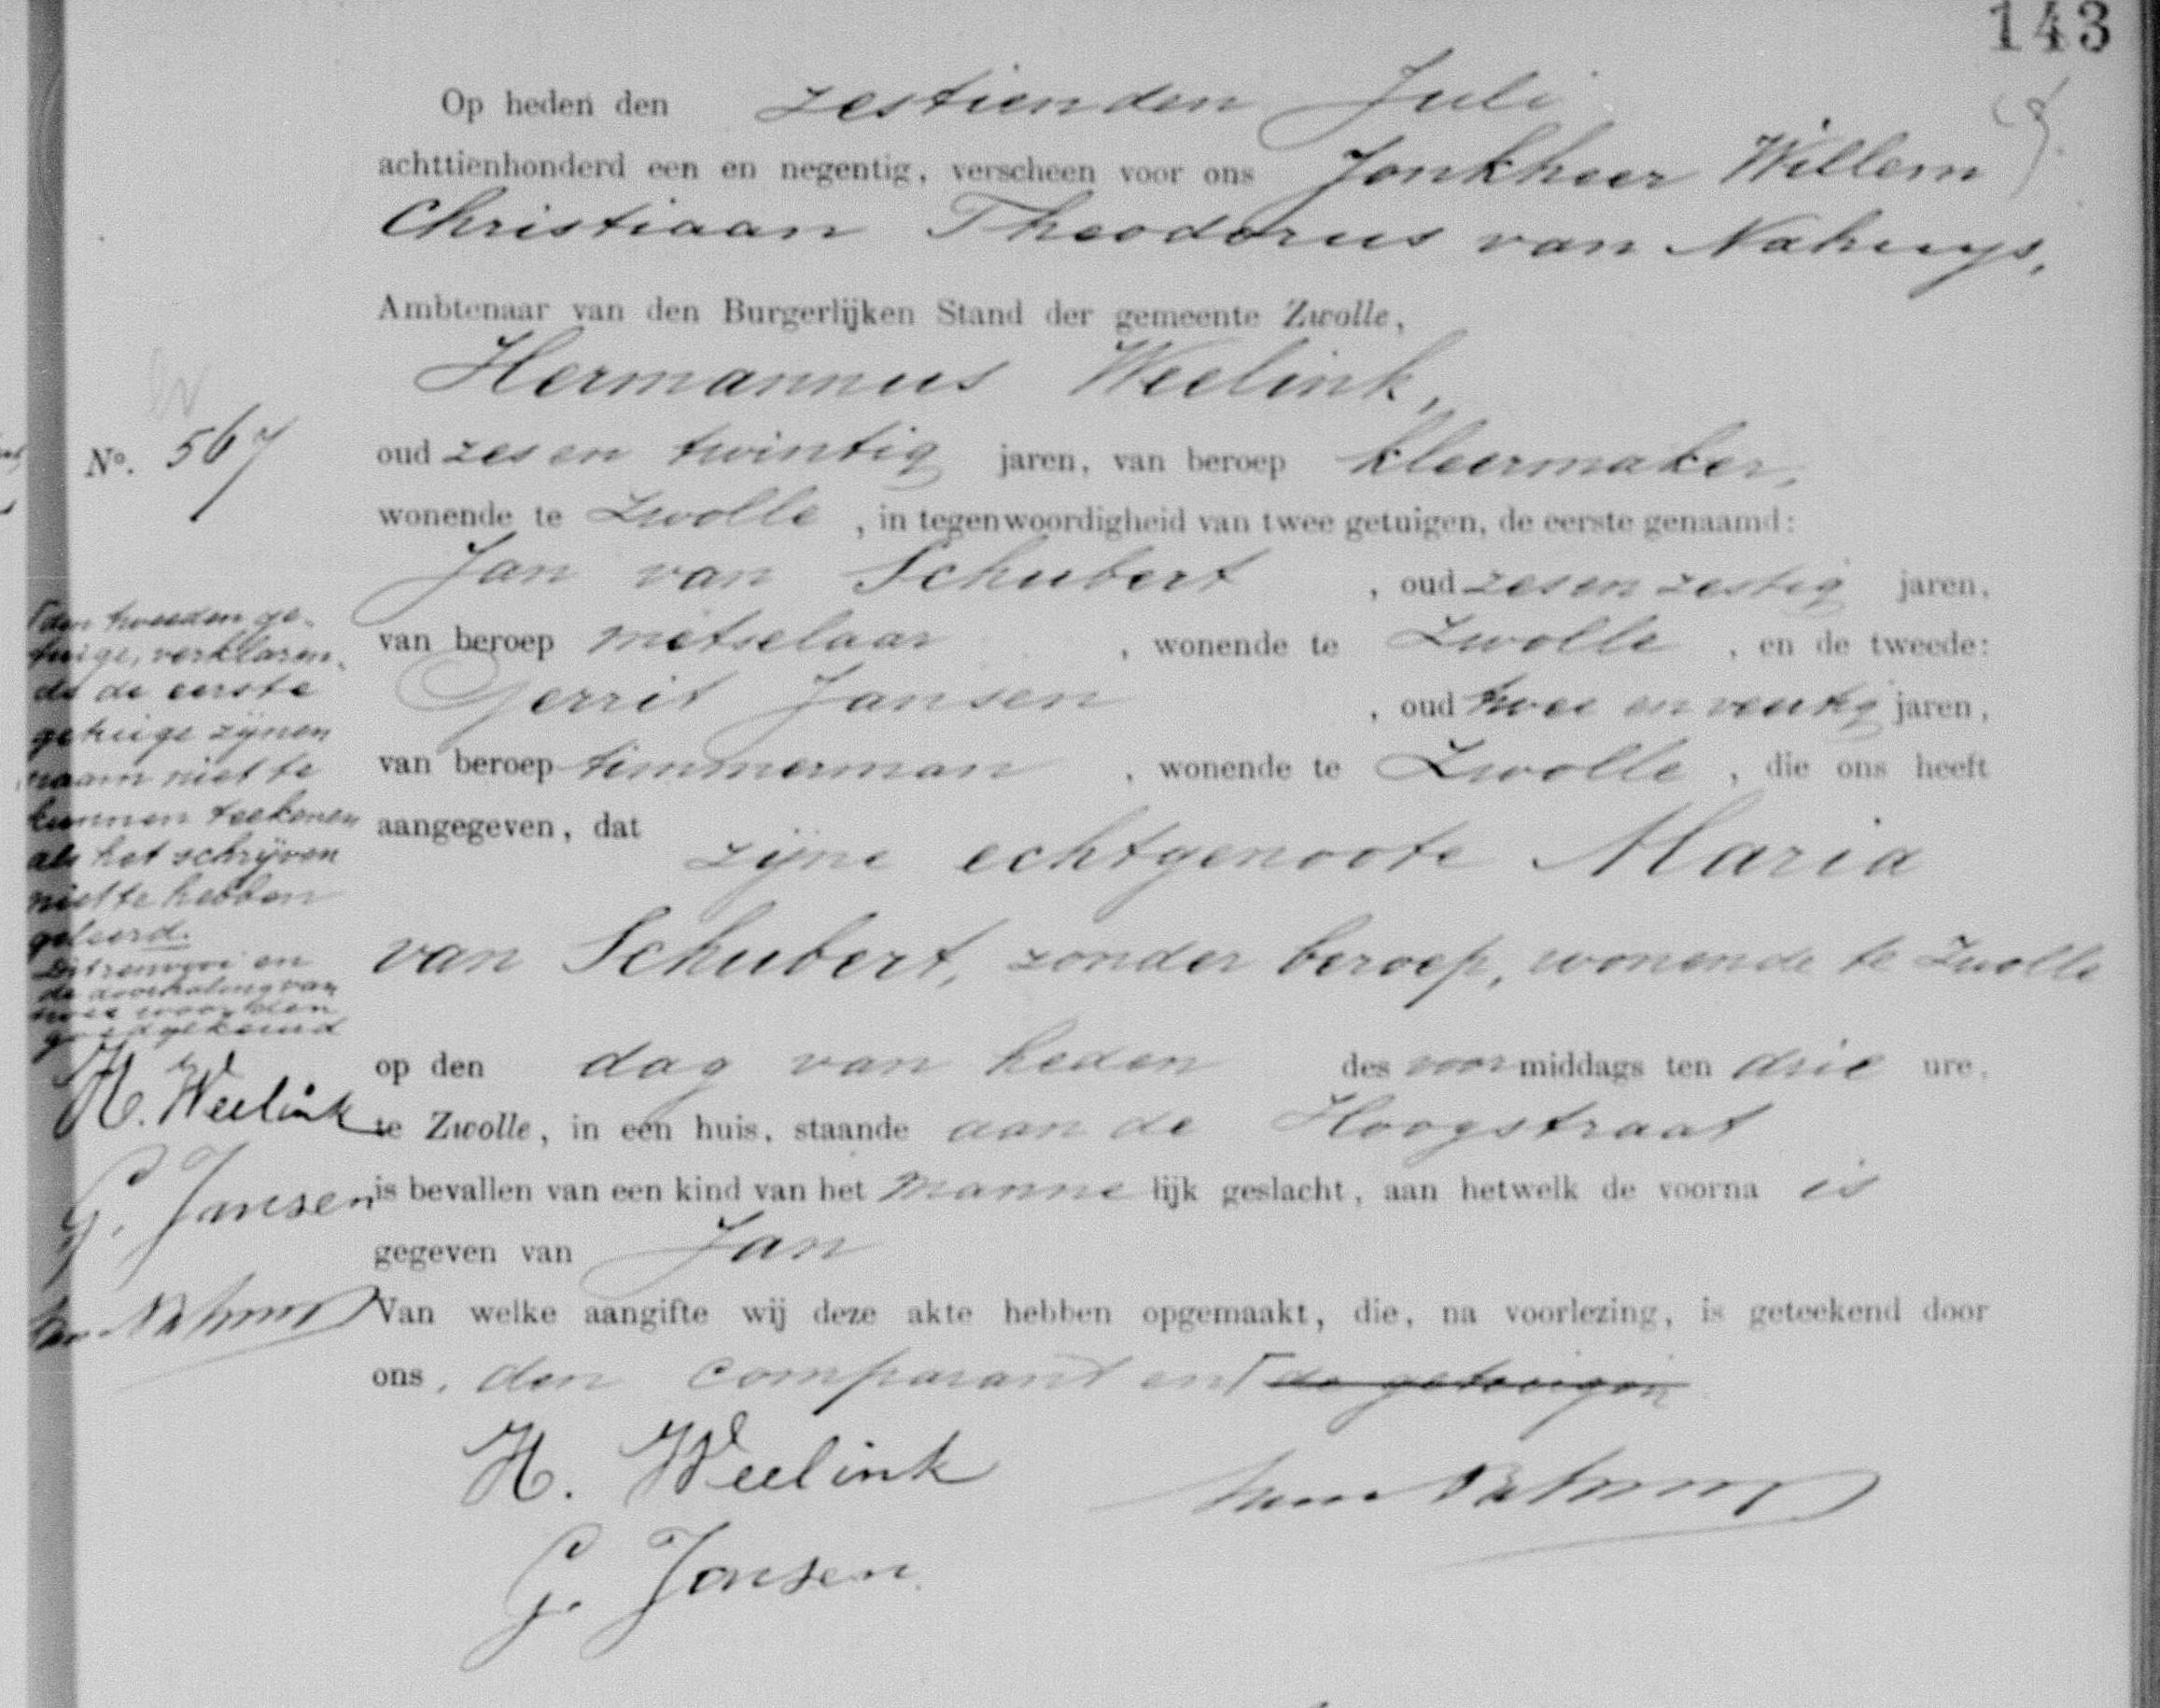 143
Op heden den zestienden Juli
achttienhonderd een en negentig, verscheen voor ons Jonkheer Willem
Christiaan Theodorus van Nahuys,
Ambtenaar van den Burgerlijken Stand der gemeente Zwolle,
Hermannus Weelink,
No. 567
oud zes en twintig jaren, van beroep kleermaker,
wonende te Zwolle, in tegenwoordigheid van twee getuigen, de eerste genaamd:
Jan van Schubert, oud zes en zestig jaren,
van beroep metselaar, wonende te Zwolle, en de tweede:
Gerrit Jansen, oud twee en jaren,
van beroep timmerman, wonende te Zwolle, die ons heeft
aangegeven, dat zijne echtgenoote Maria
van Schubert, zonder beroep, wonende te Zwolle
op den dag van heden des voormiddags ten drie ure,
te Zwolle, in een huis, staande aan de Hoogstraat
is bevallen van een kind van het mannelijk geslacht, aan hetwelk de voorna is
gegeven van Jan
Van welke aangifte wij deze akte hebben opgemaakt, die, na voorlezing, is geteekend door
ons, den comparant en de getuigen
H. Weelink
van Nahuys
G. Jansen
den tweeden ge-
tuige, verklaren-
de de eerste
getuige zijnen
naam niet te
kunnen teekenen
als het schrijven
niet te hebben
geleerd.
Dit renvooi en
de doorhaling van
twee woorden
goedgekeurd
H. Weelink
G. Jansen
van Nahuys